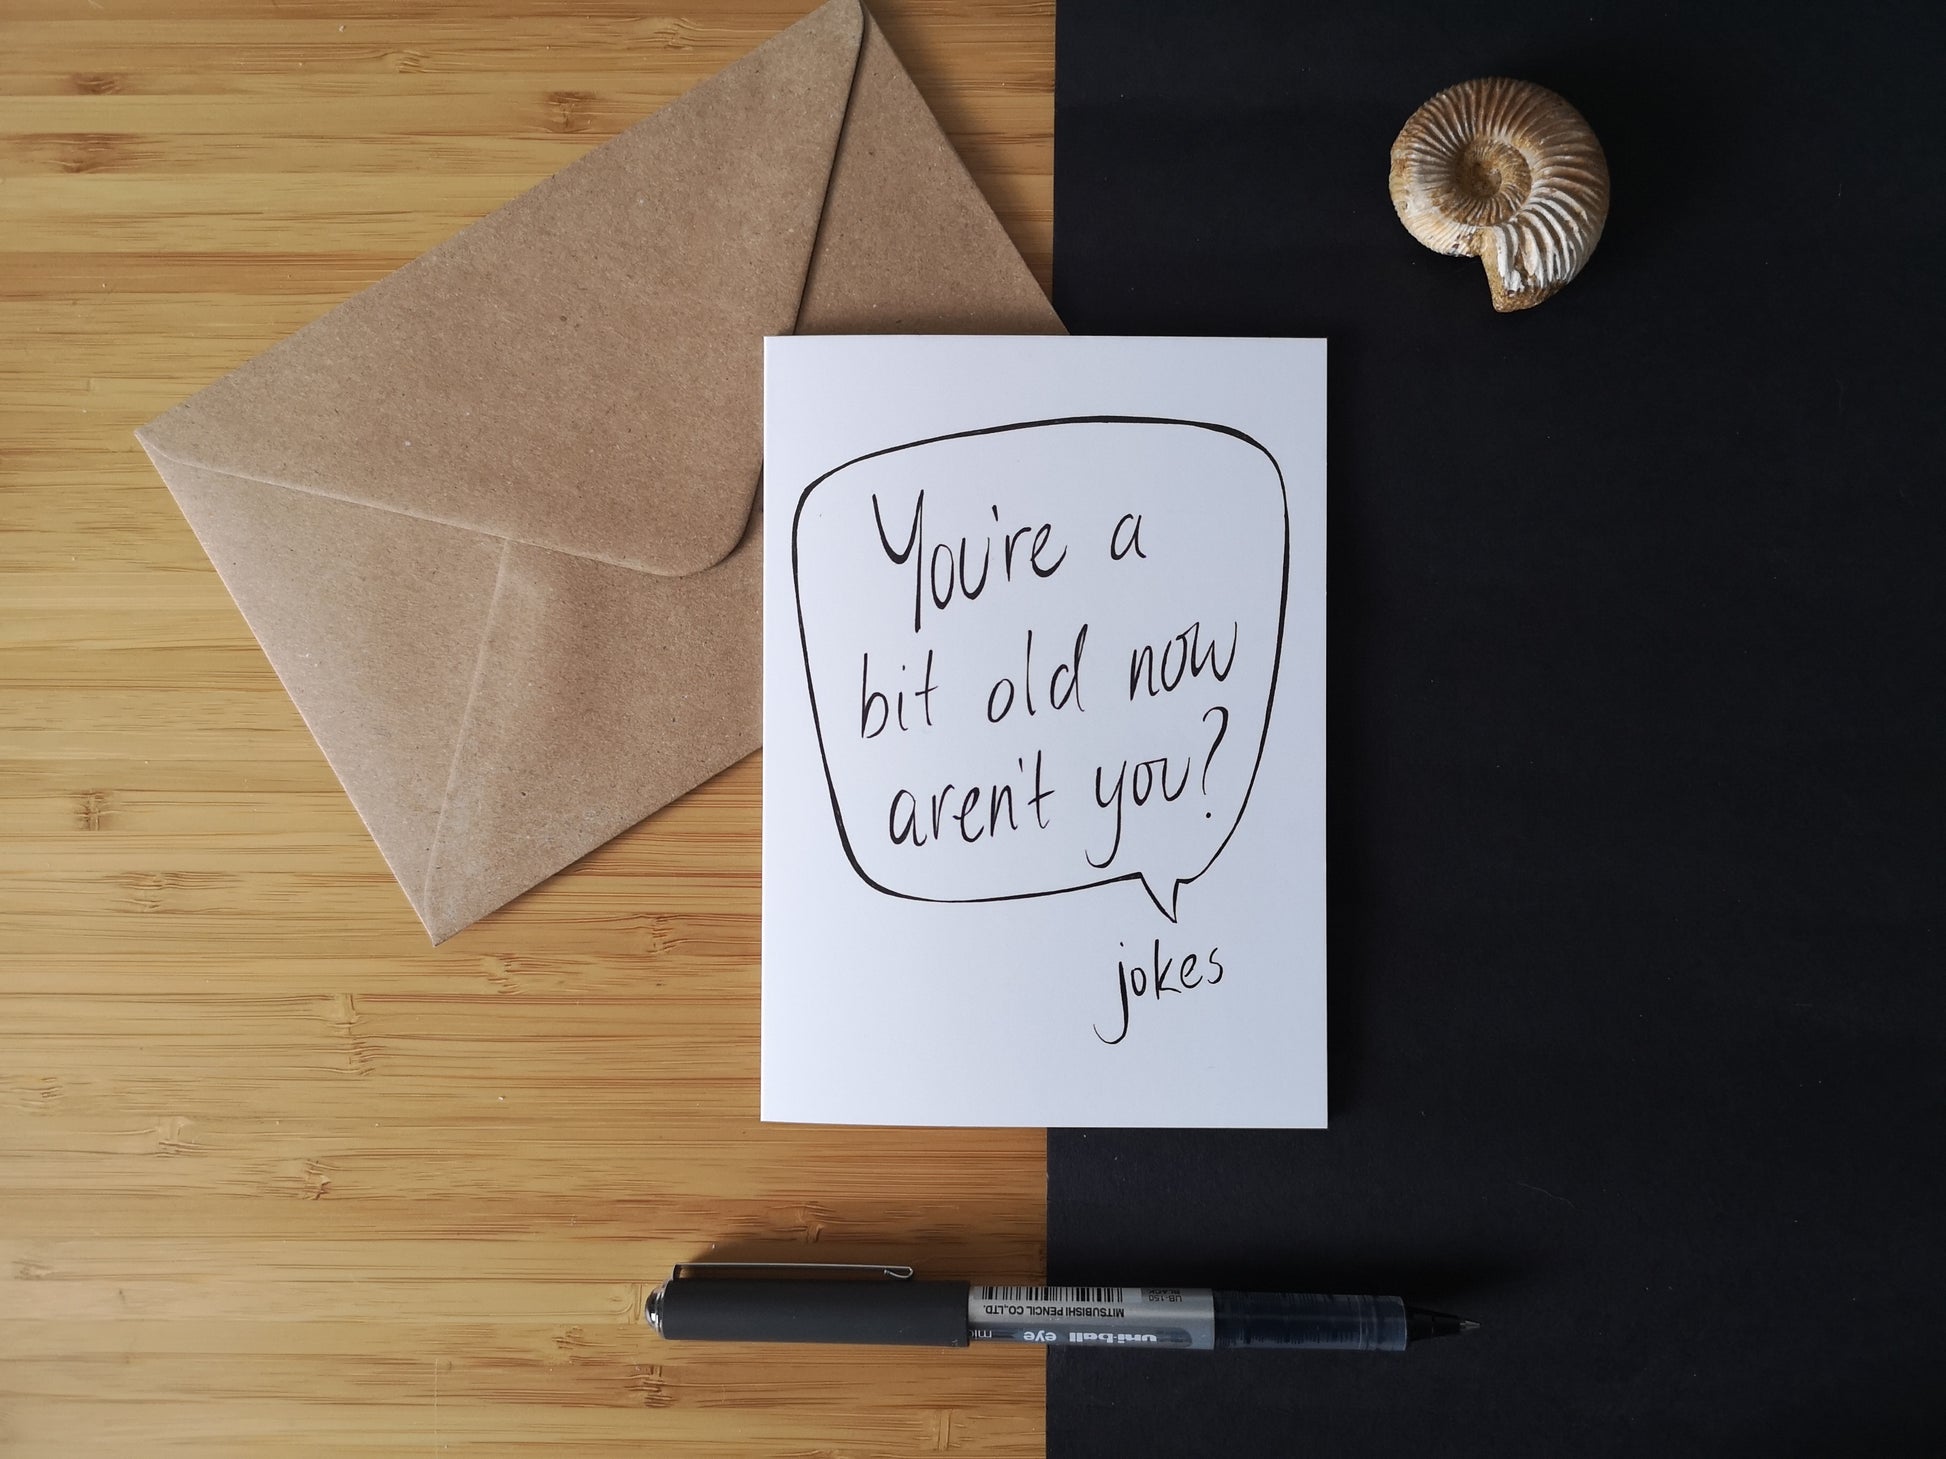 You're a
bit old now
aren't you?
jokes
UB-150
BLACK
MITSUBISHI PENCIL CO.,LTD.
uni-ball eye